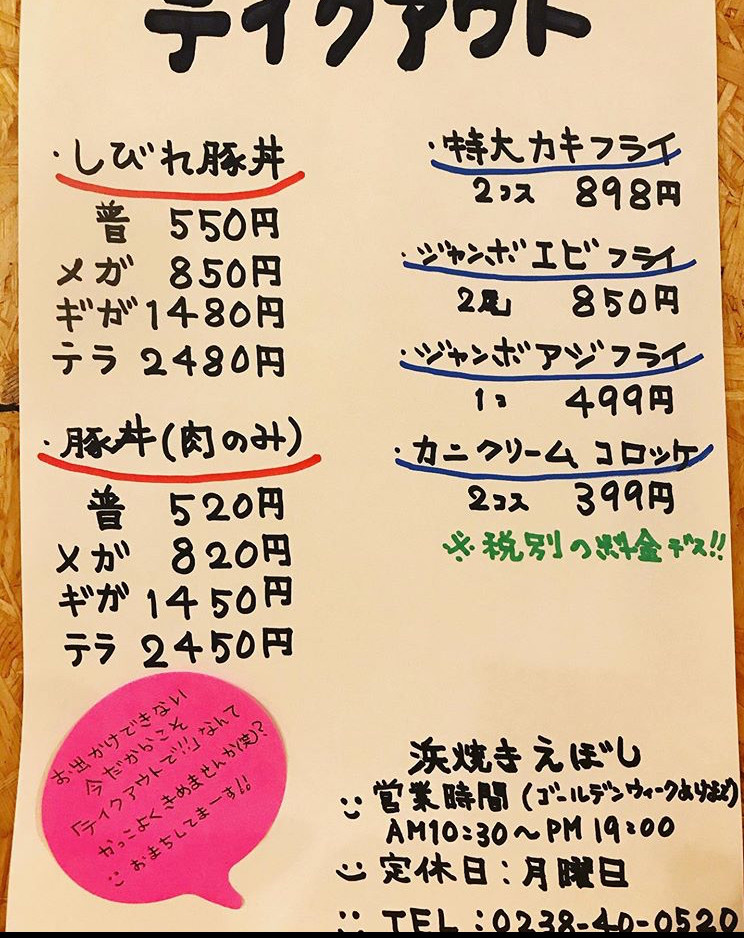 テイクアウト
・しびれ豚丼
普 550円
メガ 850円
ギガ 1480円
テラ 2480円
・豚丼(肉のみ)
普 520円
メガ 820円
ギガ 1450円
テラ 2450円
・特大カキフライ
2コス 898円
・ジャンボエビフライ
2尾 850円
・ジャンボアジフライ
1コ 499円
・カニクリームコロッケ
2コス 399円
※税別の料金デス!!
お出かけできない
今だからこそ
「テイクアウトで!!!」なんて
かっこよくきめませんか(笑)?
おまちしてまーす!!
浜焼きえぼし
営業時間(ゴールデンウィークあけまで)
AM10:30〜PM19:00
定休日:月曜日
TEL:0238-40-0520